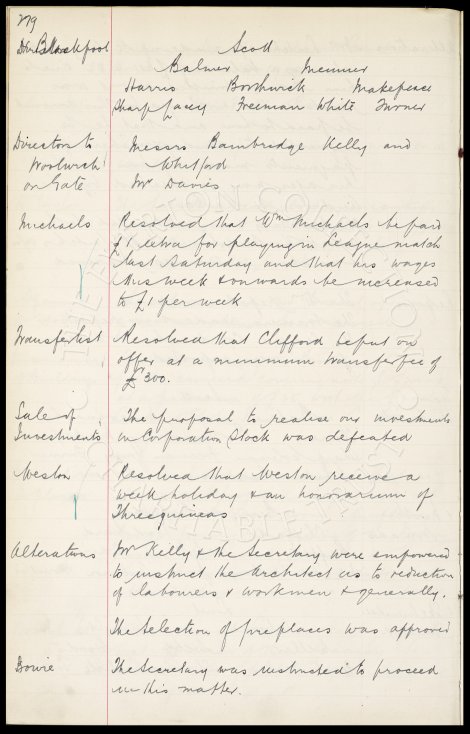 279
Dr Blackpool Scott
Balmer Meunier
Harris Borthwick Makepeace
Sharp Lacey Freeman White Turner
Directors to Messrs Bainbridge Kelly and
Woolwich Whitford
on Gate Mr Davies
Michaels Resolved that Wm Michaels be paid
£1 extra for playing in League match
last Saturday and that his wages
this week & onwards be increased
to £1 per week
Transfer list Resolved that Clifford be put on
offer at a minimum transfer fee of
£300.
Sale of The proposal to realise our investments
Investments in Corporation Stock was defeated
Weston Resolved that Weston receive a
week holiday & an honorarium of
Three guineas
Alterations Mr Kelly & the Secretary were empowered
to instruct the Architect as to reduction
of labourers & workmen & generally.
The selection of fireplaces was approved
Bowie The Secretary was instructed to proceed
in this matter.